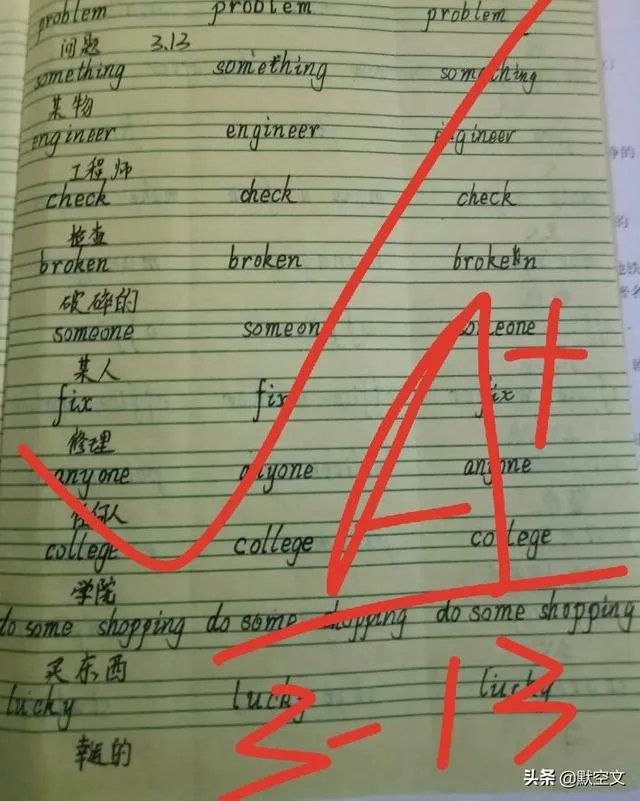 problem problem problem
问题 3.13
something something something
某物
engineer engineer engineer
工程师
check check check
检查
broken broken broken
破碎的
someone someone someone
某人
fix fix fix
修理
anyone anyone anyone
任何人
college college college
学院
do some shopping do some shopping do some shopping
买东西
lucky lucky lucky
幸运的
A+
3-13
头条 @默空文